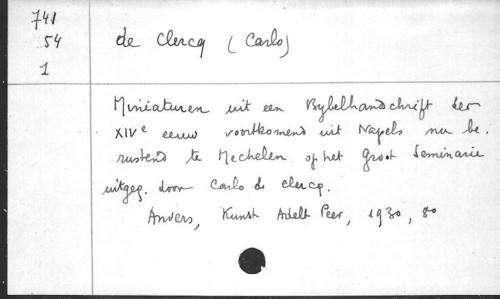 741
54
1
de Clercq (Carlo)
Miniaturen uit een Bybelhandschrift der
XIVe eeuw voortkomend uit Napels nu be.
rustend te Mechelen op het Groot Seminarie
uitgeg. door Carlo de Clercq.
Anvers, Kunst Adelt Peer, 1930, 80